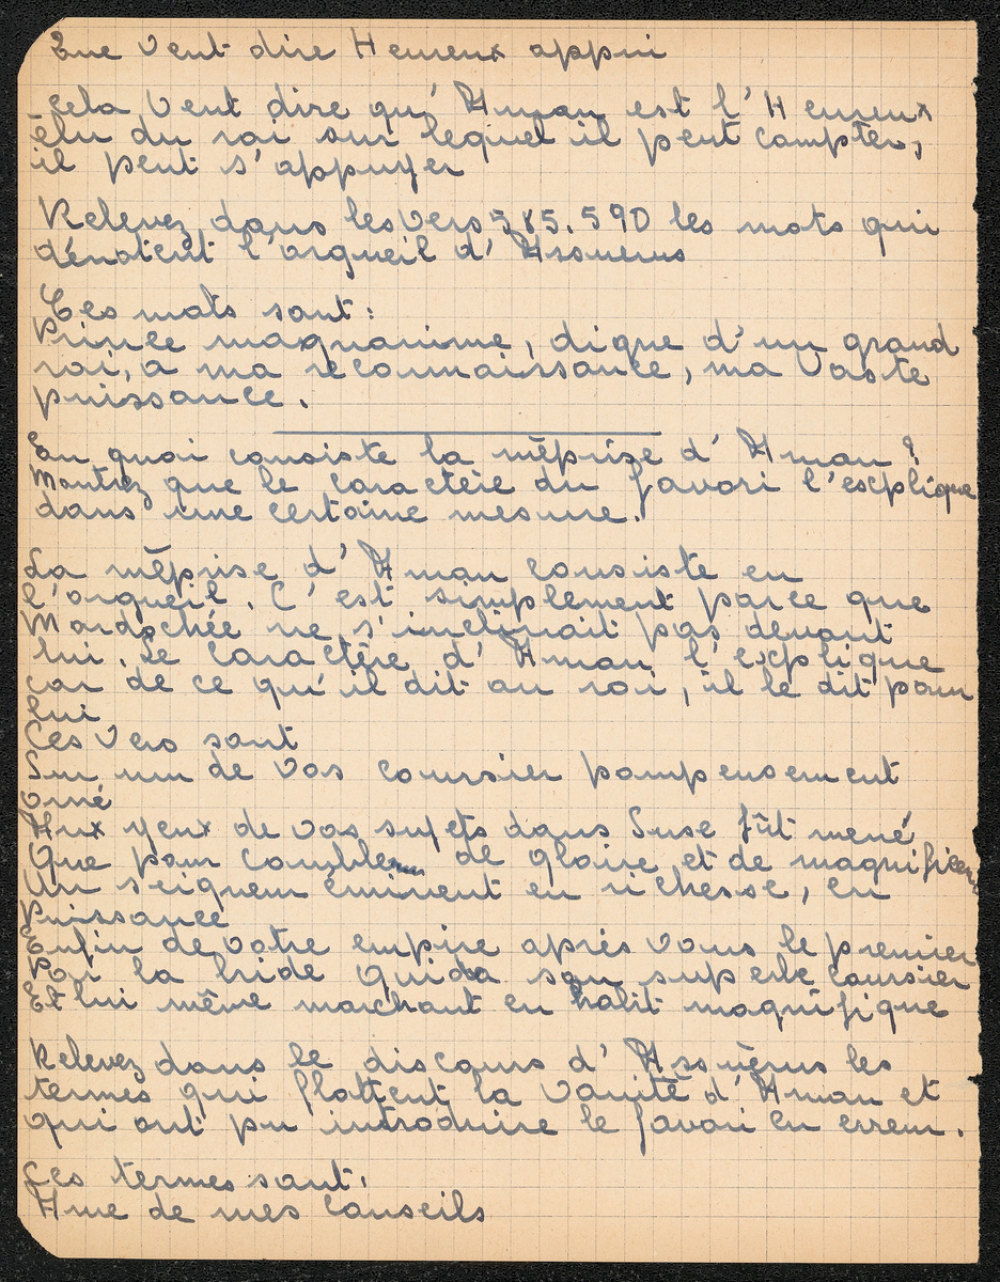 Que veut dire Heureux appui
Cela veut dire qu'Aman est l'Heureux
élu du roi sur lequel il peut compter,
il peut s'appuyer
Relevez dans les vers 585.590 les mots qui
dénotent l'orgueil d'Assuerus
Ces mots sont:
Prince magnanime, digne d'un grand
roi, a ma reconnaissance, ma vaste
puissance.
En quoi consiste la méprise d'Aman?
Montrez que le caractère du favori l'explique
dans une certaine mesure.
La méprise d'Aman consiste en
l'orgueil. C'est simplement parce que
Mardochée ne s'inclinait pas devant
lui. Le caractère d'Aman l'explique
car de ce qu'il dit au roi, il le dit pour
lui
Ces vers sont
Sur un de vos coursier pompeusement
orné
Aux yeux de vos sujets dans Suse fût mené
Que pour combler de gloire et de magnificen
Un seigneur éminent en richesse, en
Puissance
Enfin de votre empire après vous le premier
Par la bride guida son superbe coursier
Et lui même marchant en habit magnifique
Relevez dans le discours d'Assuérus les
termes qui flattent la vanité d'Aman et
qui ont pu introduire le favori en erreur.
Ces termes sont:
Ame de mes conseils